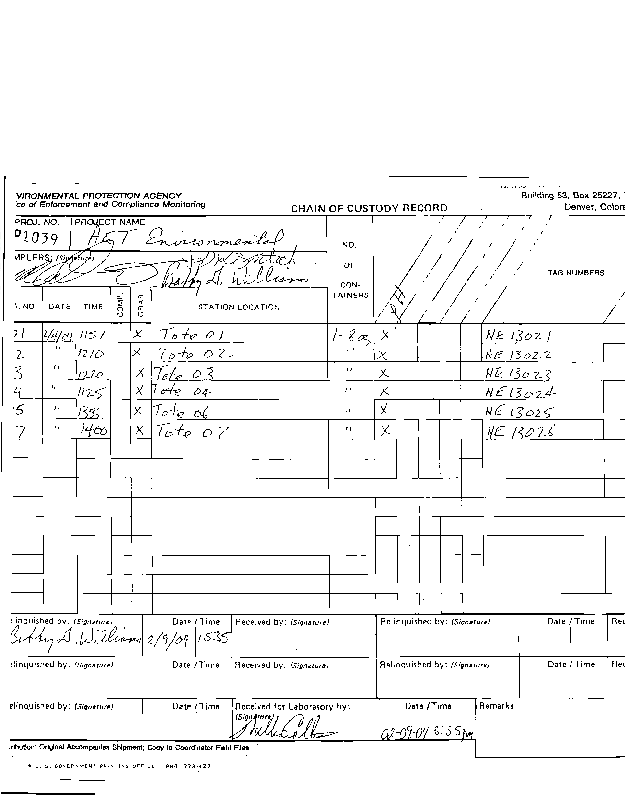 VIRONMENTAL PROTECTION AGENCY
ce of Enforcement and Compliance Monitoring
CHAIN OF CUSTODY RECORD
Building 53, Box 25227,
Denver, Colora
PROJ. NO. PROJECT NAME
01039 Environmental
MPLERS: (Signature)
Bobby G. Williams
NO.
OF
CON-
TAINERS
TAG NUMBERS
. NO. DATE TIME COMP. GRAB STATION LOCATION
01 2/9/09 1151 X Tote 01 1-8oz X NE 13021
2 " 1210 X Tote 02 " X NE 13022
3 " 1220 X Tote 03 " X NE 13023
4 " 1125 X Tote 04 " X NE 13024
5 " X Tote 06 " X NE 13025
7 " 1400 X Tote 07 " X NE 13026
linquished by: (Signature) Date / Time Received by: (Signature) Relinquished by: (Signature) Date / Time Rec
Bobby G. Williams 2/9/09 1535
elinquished by: (Signature) Date / Time Received by: (Signature) Relinquished by: (Signature) Date / Time Rec
elinquished by: (Signature) Date / Time Received for Laboratory by: Date / Time Remarks
(Signature)
02-09-09 3:35pm
tribution: Original Accompanies Shipment; Copy to Coordinator Field Files
U.S. GOVERNMENT PRINTING OFFICE